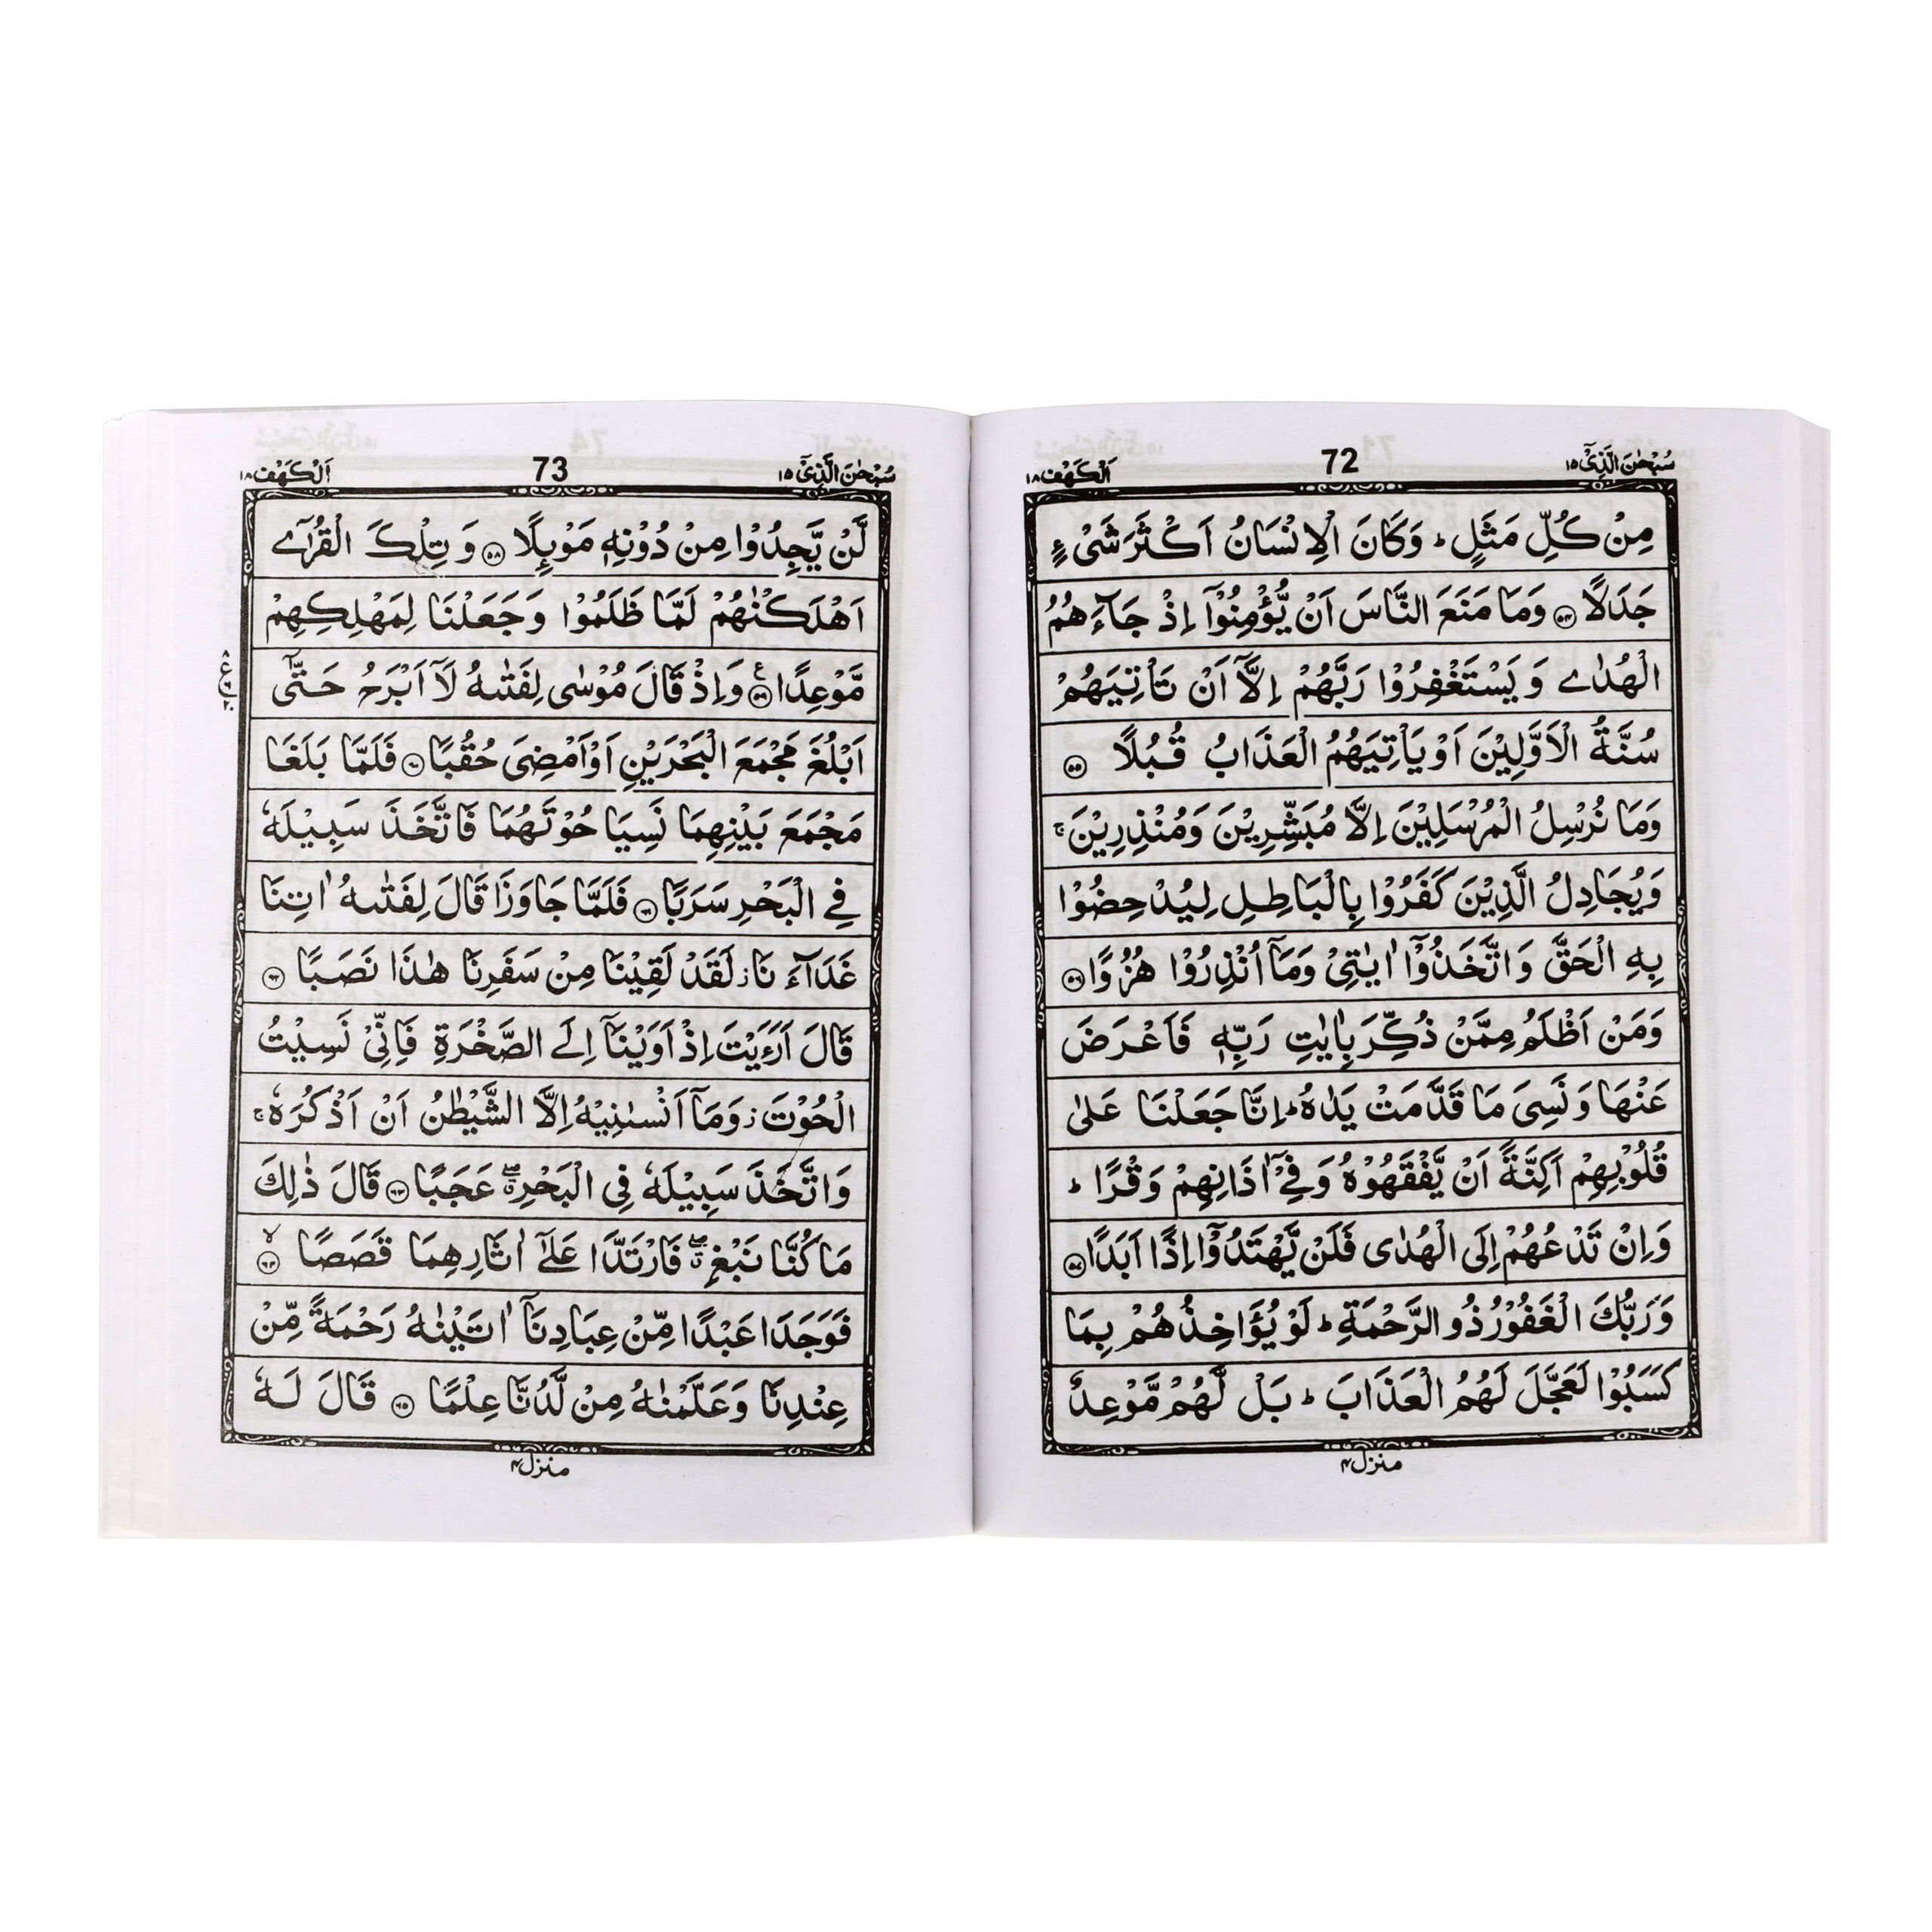 سُبْحٰنَ الَّذِیْٓ ١٥
72
اَلْكَهْف ١٨
مِنْ كُلِّ مَثَلٍ ؕ وَكَانَ الْاِنْسَانُ اَكْثَرَ شَیْءٍ
جَدَلًا ﴿٥٤﴾ وَمَا مَنَعَ النَّاسَ اَنْ یُّؤْمِنُوْۤا اِذْ جَآءَهُمُ
الْهُدٰی وَیَسْتَغْفِرُوْا رَبَّهُمْ اِلَّاۤ اَنْ تَاْتِیَهُمْ
سُنَّةُ الْاَوَّلِیْنَ اَوْ یَاْتِیَهُمُ الْعَذَابُ قُبُلًا ﴿٥٥﴾
وَمَا نُرْسِلُ الْمُرْسَلِیْنَ اِلَّا مُبَشِّرِیْنَ وَمُنْذِرِیْنَ ۚ
وَیُجَادِلُ الَّذِیْنَ كَفَرُوْا بِالْبَاطِلِ لِیُدْحِضُوْا
بِهِ الْحَقَّ وَاتَّخَذُوْۤا اٰیٰتِیْ وَمَاۤ اُنْذِرُوْا هُزُوًا ﴿٥٦﴾
وَمَنْ اَظْلَمُ مِمَّنْ ذُكِّرَ بِاٰیٰتِ رَبِّهٖ فَاَعْرَضَ
عَنْهَا وَنَسِیَ مَا قَدَّمَتْ یَدٰهُ ؕ اِنَّا جَعَلْنَا عَلٰی
قُلُوْبِهِمْ اَكِنَّةً اَنْ یَّفْقَهُوْهُ وَفِیْۤ اٰذَانِهِمْ وَقْرًا ؕ
وَاِنْ تَدْعُهُمْ اِلَی الْهُدٰی فَلَنْ یَّهْتَدُوْۤا اِذًا اَبَدًا ﴿٥٧﴾
وَرَبُّكَ الْغَفُوْرُ ذُو الرَّحْمَةِ ؕ لَوْ یُؤَاخِذُهُمْ بِمَا
كَسَبُوْا لَعَجَّلَ لَهُمُ الْعَذَابَ ؕ بَلْ لَّهُمْ مَّوْعِدٌ
منزل ٤
سُبْحٰنَ الَّذِیْٓ ١٥
73
اَلْكَهْف ١٨
لَّنْ یَّجِدُوْا مِنْ دُوْنِهٖ مَوْىِٕلًا ﴿٥٨﴾ وَتِلْكَ الْقُرٰۤی
اَهْلَكْنٰهُمْ لَمَّا ظَلَمُوْا وَجَعَلْنَا لِمَهْلِكِهِمْ
مَّوْعِدًا ﴿٥٩﴾ وَاِذْ قَالَ مُوْسٰی لِفَتٰىهُ لَاۤ اَبْرَحُ حَتّٰۤی
اَبْلُغَ مَجْمَعَ الْبَحْرَیْنِ اَوْ اَمْضِیَ حُقُبًا ﴿٦٠﴾ فَلَمَّا بَلَغَا
مَجْمَعَ بَیْنِهِمَا نَسِیَا حُوْتَهُمَا فَاتَّخَذَ سَبِیْلَهٗ
فِی الْبَحْرِ سَرَبًا ﴿٦١﴾ فَلَمَّا جَاوَزَا قَالَ لِفَتٰىهُ اٰتِنَا
غَدَآءَنَا ؗ لَقَدْ لَقِیْنَا مِنْ سَفَرِنَا هٰذَا نَصَبًا ﴿٦٢﴾
قَالَ اَرَءَیْتَ اِذْ اَوَیْنَاۤ اِلَی الصَّخْرَةِ فَاِنِّیْ نَسِیْتُ
الْحُوْتَ ؗ وَمَاۤ اَنْسٰىنِیْهُ اِلَّا الشَّیْطٰنُ اَنْ اَذْكُرَهٗ ۚ
وَاتَّخَذَ سَبِیْلَهٗ فِی الْبَحْرِ ۖ عَجَبًا ﴿٦٣﴾ قَالَ ذٰلِكَ
مَا كُنَّا نَبْغِ ۖ فَارْتَدَّا عَلٰۤی اٰثَارِهِمَا قَصَصًا ﴿٦٤﴾ ۙ
فَوَجَدَا عَبْدًا مِّنْ عِبَادِنَاۤ اٰتَیْنٰهُ رَحْمَةً مِّنْ
عِنْدِنَا وَعَلَّمْنٰهُ مِنْ لَّدُنَّا عِلْمًا ﴿٦٥﴾ قَالَ لَهٗ
منزل ٤